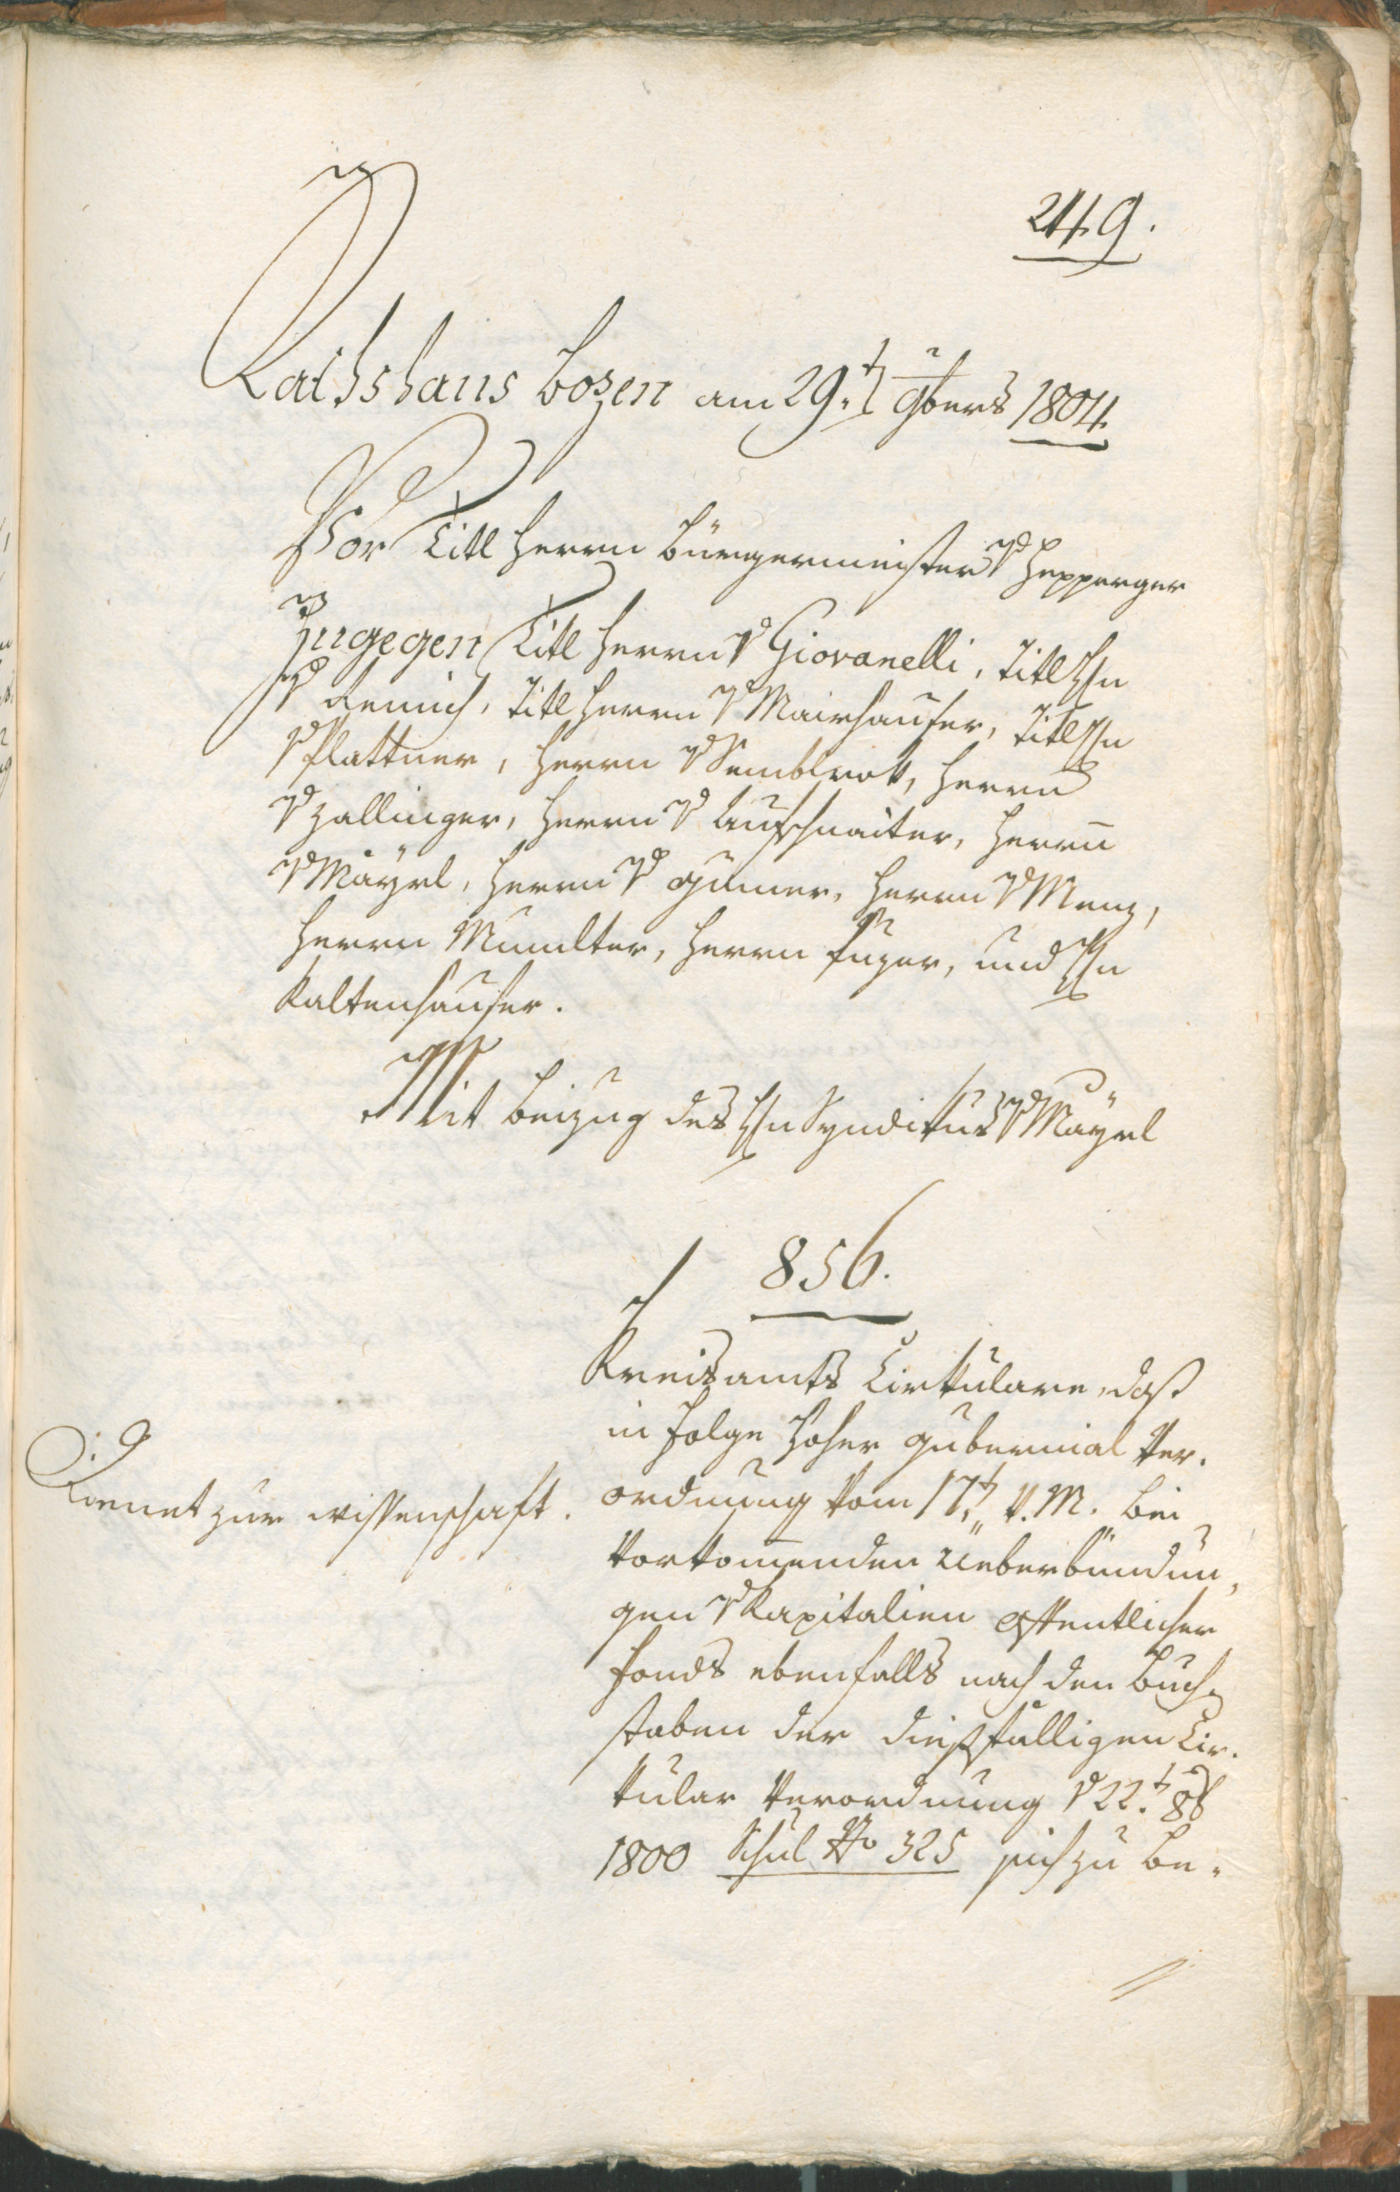 249.
Rathshaus Bozen am 29t 9bers 1804
Vor Titl Herrn Bürgermeister v Hepperger
Zugegen Titl Herrn v Giovanelli, Titl Hn
v Remich, Titl Herrn v Mairhauser, Titl Hn
v Plattner, Herrn v Semblirok, Herrn
v Zallinger, Herrn v Aufschnaiter, Herrn
v Mäyrl, Herrn v Gumer, Herrn v Menz,
Herrn Mumelter, Herrn Puzer, und Hn
Kaltenhauser.
Mit Beizug des Hn Syndikus v Mäyrl
856.
Kreisamts Cirkulare, daß
in Folge hoher Gubernial Ver-
ordnung vom 17t v. M. bei
vorkommenden Ueberbindun,
gen v Kapitalien öffentlicher
Fonds ebenfalls nach den Buch-
staben der dießfälligen Cir-
kular Verordnung v 22t 8b
1800 Schul No 325 sich zu be-
Dienet zur Wissenschaft.